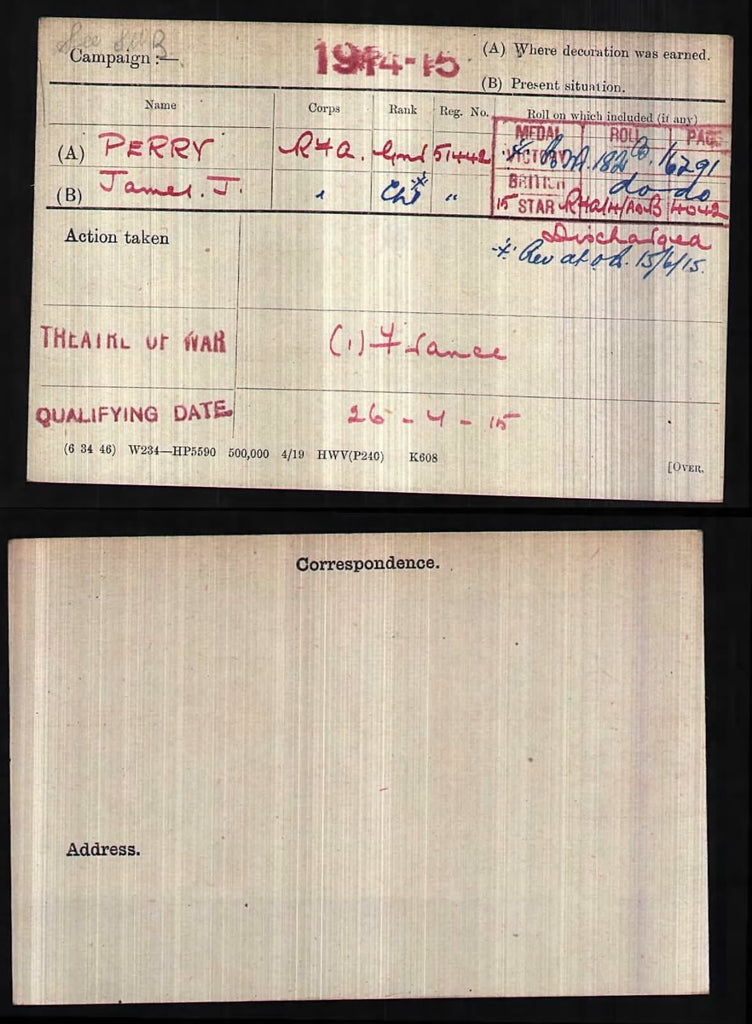 See SWB
Campaign :— 1914-15 (A) Where decoration was earned.
(B) Present situation.
Name Corps Rank Reg. No. Roll on which included (if any)
MEDAL ROLL PAGE
(A) PERRY RHA. Gnr 51442 VICTORY 182 B. 16291
(B) James. J. " " BRITISH do do
15 STAR RHA/4/A&B 4042
Action taken Discharged
* Rev at o.r. 15/6/15.
THEATRE OF WAR (1) France
QUALIFYING DATE 26 - 4 - 15
(6 34 46) W234—HP5590 500,000 4/19 HWV(P240) K608
[OVER.
Correspondence.
Address.